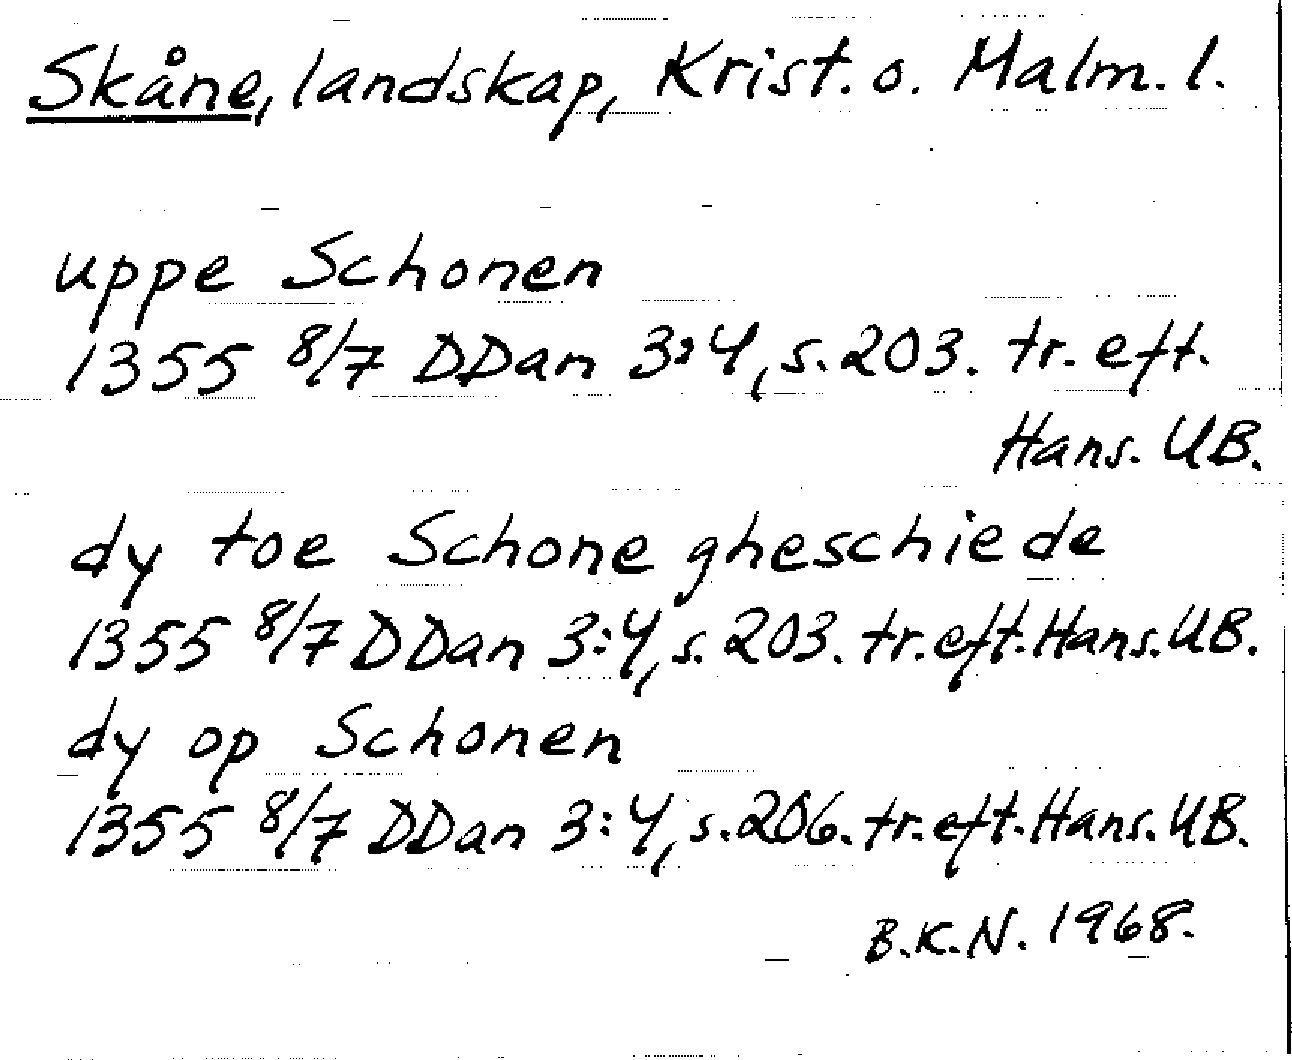 Skåne, landskap, Krist. o. Malm. l.
uppe Schonen
1355 8/7 DDan 3:4, s. 203. tr. eft.
Hans. UB.
dy toe Schone gheschiede
1355 8/7 DDan 3:4, s. 203. tr. eft. Hans. UB.
dy op Schonen
1355 8/7 DDan 3:4, s. 206. tr. eft. Hans. UB.
B.K.N. 1968.